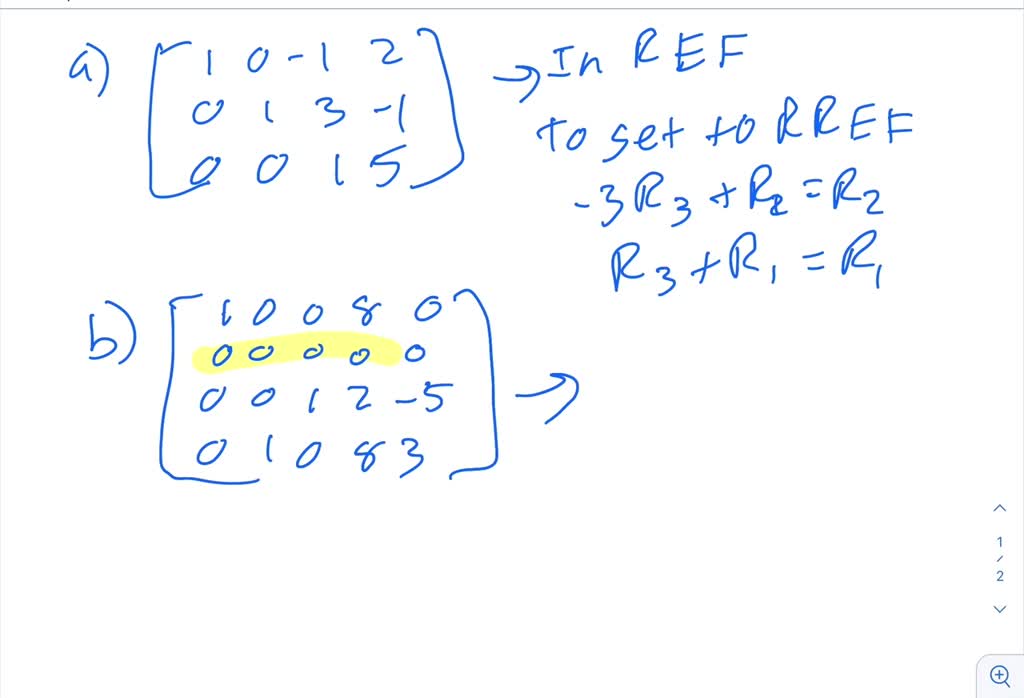 a) [1 0 -1 2
0 1 3 -1
0 0 1 5] → In REF
To set to RREF
-3R3 + R2 = R2
R3 + R1 = R1
b) [1 0 0 8 0
0 0 0 0 0
0 0 1 2 -5
0 1 0 8 3] →
1
/
2